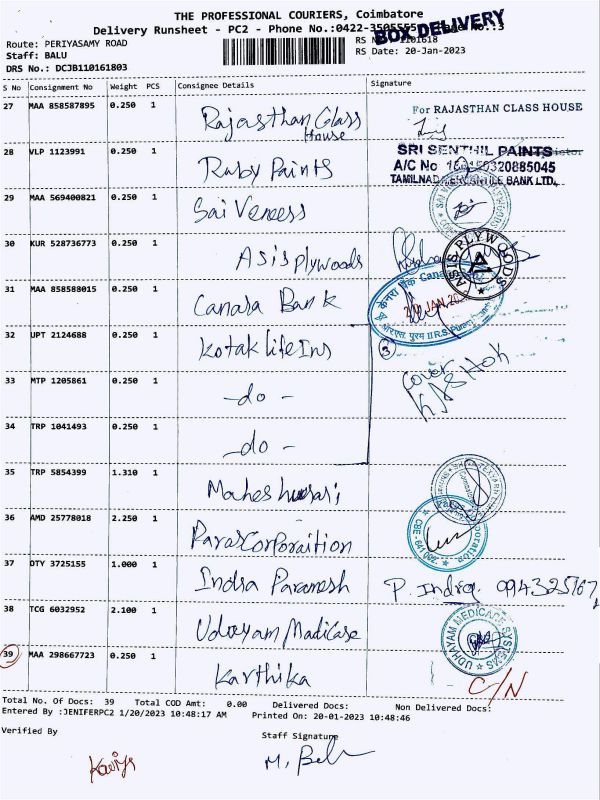 THE PROFESSIONAL COURIERS, Coimbatore
Delivery Runsheet - PC2 - Phone No.:0422-3505555
BOX DELIVERY
Route: PERIYASAMY ROAD
Staff: BALU
RS Date: 20-Jan-2023
DRS No.: DCJB110161803
S No Consignment No Weight PCS Consignee Details Signature
27 MAA 858587895 0.250 1 Rajasthan Glass House For RAJASTHAN CLASS HOUSE
28 VLP 1123991 0.250 1 Ruby Paints SRI SENTHIL PAINTS
A/C No
TAMILNAD MERCANTILE BANK LTD.,
29 MAA 569400821 0.250 1 Sai Veneess
30 KUR 528736773 0.250 1 Asis plywoods ASIS PLYWOODS
31 MAA 858588015 0.250 1 Canara Bank
32 UPT 2124688 0.250 1 Kotak life Ins 3
33 MTP 1205861 0.250 1 -do- Cover
34 TRP 1041493 0.250 1 -do-
35 TRP 5854399 1.310 1 Maheshwari
36 AMD 25778018 2.250 1 Paras Corporaition
37 DTY 3725155 1.000 1 Indra Paramesh P. Indra.
38 TCG 6032952 2.100 1 Udvayam Madicase UDHAYAM MEDICAGE SYSTEMS
39 MAA 298667723 0.250 1 Karthika C/N
Total No. Of Docs: 39 Total COD Amt: 0.00 Delivered Docs: Non Delivered Docs:
Entered By :JENIFERPC2 1/20/2023 10:48:17 AM Printed On: 20-01-2023 10:48:46
Verified By Staff Signature